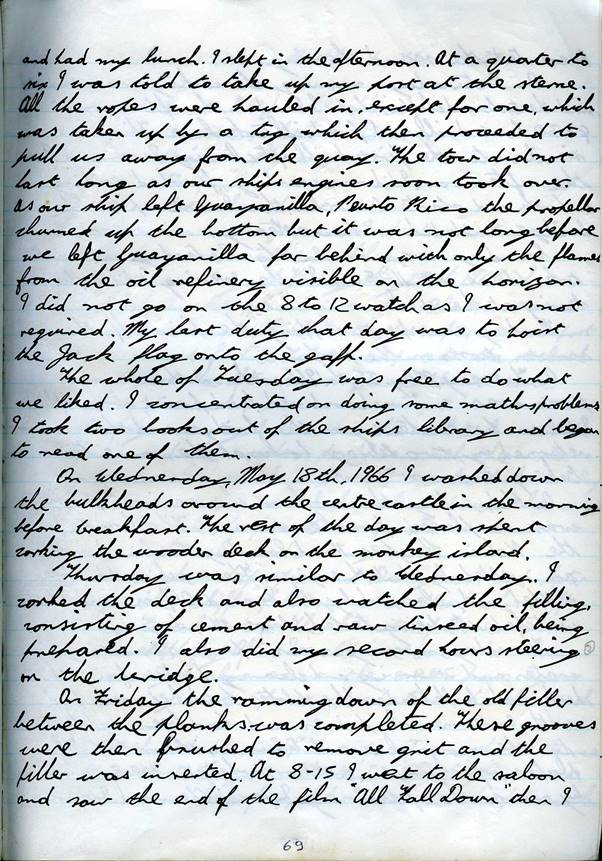 and had my lunch. I slept in the afternoon. At a quarter to
six I was told to take up my post at the sterne.
All the ropes were hauled in, except for one, which
was taken up by a tug which then proceeded to
pull us away from the quay. The tow did not
last long as our ships engines soon took over.
As our ship left Guayanilla, Peurto Rico the propellor
churned up the bottom but it was not long before
we left Guayanilla far behind with only the flames
from the oil refinery visible on the horizon.
I did not go on the 8 to 12 watch as I was not
required. My last duty that day was to hoist
the Jack flag onto the gaff.
The whole of Tuesday was free to do what
we liked. I concentrated on doing some maths problems
I took two books out of the ships library and began
to read one of them.
On Wednesday, May 18th, 1966 I washed down
the bulkheads around the centre castle in the morning
before breakfast. The rest of the day was spent
corking the wooden deck on the monkey island.
Thursday was similar to Wednesday. I
corked the deck and also watched the filling,
consisting of cement and raw linseed oil, being
prepared. I also did my second hours steering
on the bridge.
On Friday the ramming down of the old filler
between the planks was completed. These grooves
were then brushed to remove grit and the
filler was inserted. At 8-15 I went to the saloon
and saw the end of the film "All Fall Down" then I
69